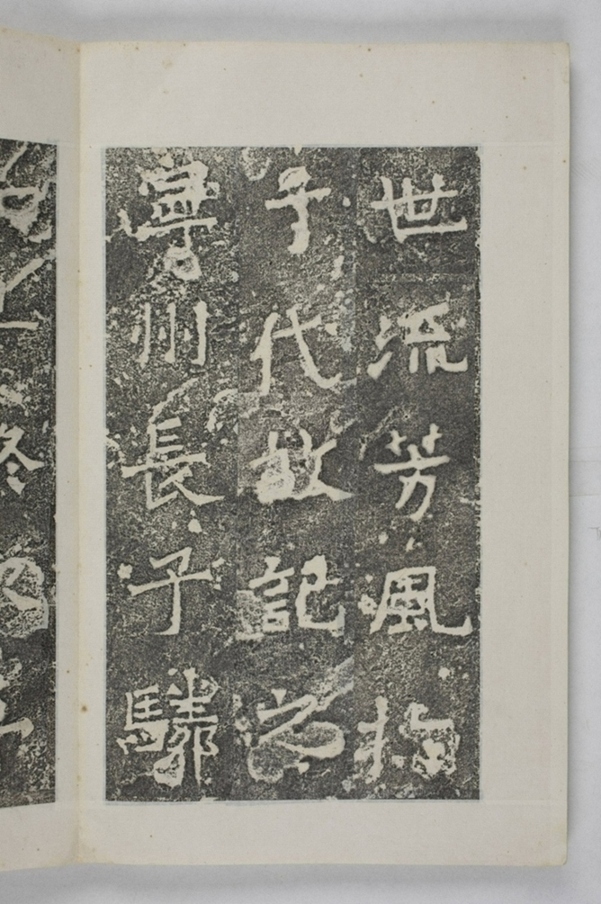 世流芳風於
千代故記之
寧州長子驎